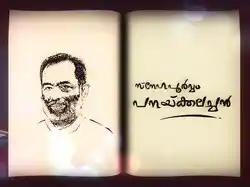 സ്നേഹപൂർവ്വം
പനയ്ക്കലച്ചൻ